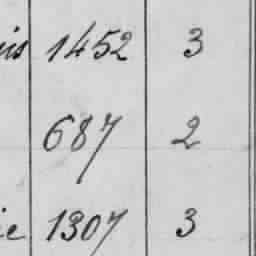 is 1452 3
687 2
ie 1307 3